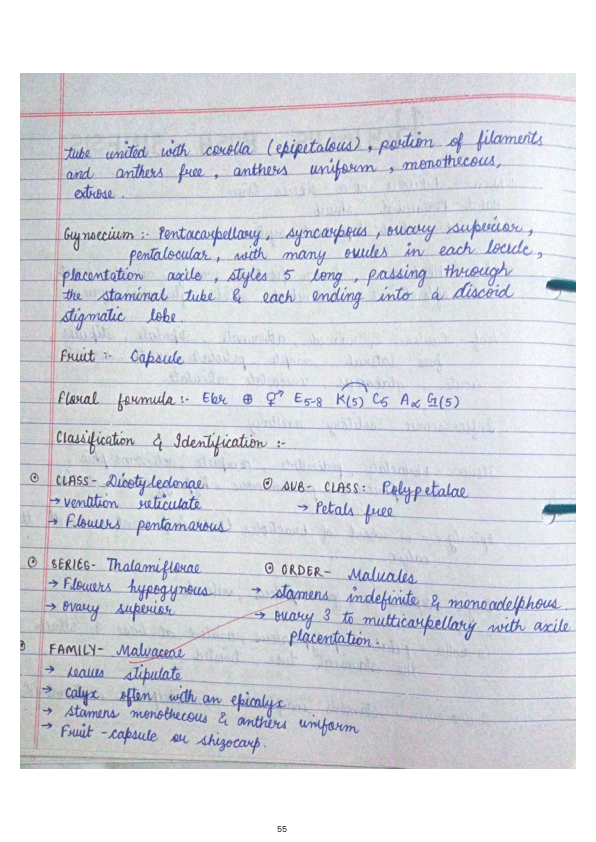 tube united with corolla (epipetalous), portion of filaments
and anthers free, anthers uniform, monothecous,
extrose.
Gynoecium :- Pentacarpellary, syncarpous, ovary superior,
pentalocular, with many ovules in each locule,
placentation axile, styles 5 long, passing through
the staminal tube & each ending into a discoid
stigmatic lobe
Fruit :- Capsule
Floral formula :- Ebr ⊕ ⚥ E5-8 K(5) C5 A∝ G(5)
Classification & Identification :-
CLASS- Dicotyledonae
→ venation reticulate
→ Flowers pentamarous
SUB- CLASS: Polypetalae
→ Petals free
SERIES- Thalamiflorae
→ Flowers hypogynous
→ ovary superior
ORDER- Malvales
→ stamens indefinite & monoadelphous.
→ ovary 3 to multicarpellary with axile
placentation.
FAMILY- Malvaceae
→ leaves stipulate
→ calyx often with an epicalyx
→ stamens monothecous & anthers uniform
→ Fruit -capsule or shizocarp.
55